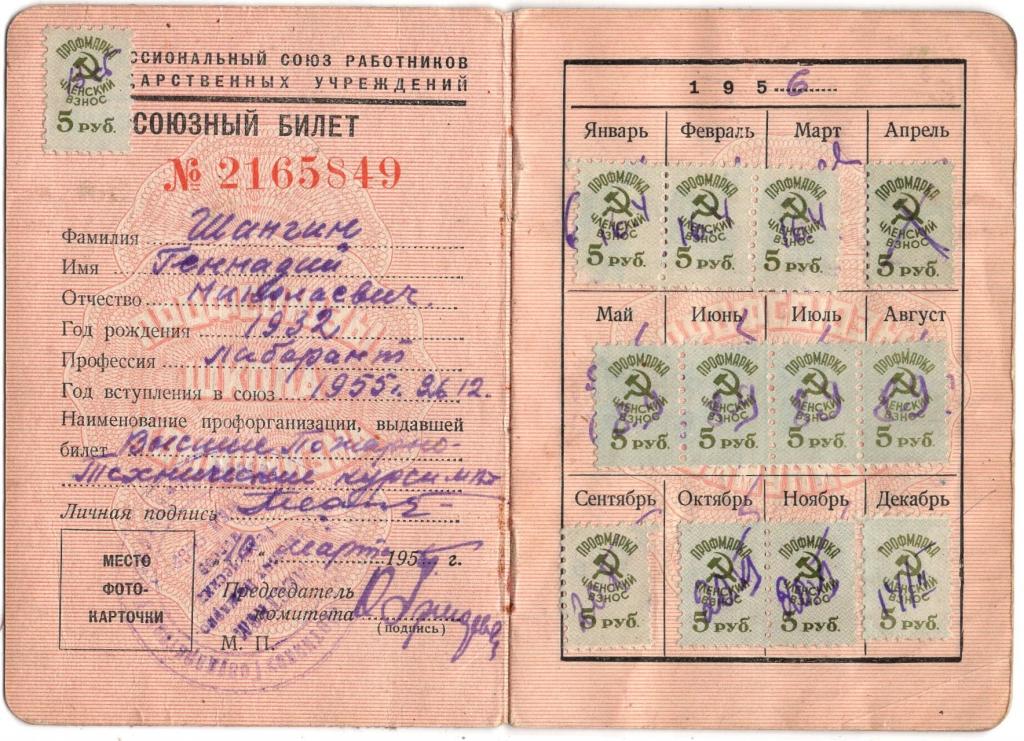 ПРОФМАРКА
ЧЛЕНСКИЙ
ВЗНОС
5 РУБ.
ССИОНАЛЬНЫЙ СОЮЗ РАБОТНИКОВ
ДАРСТВЕННЫХ УЧРЕЖДЕНИЙ
СОЮЗНЫЙ БИЛЕТ
№ 2165849
Фамилия Шангин
Имя Геннадий
Отчество Николаевич.
Год рождения 1932
Профессия лаборант
Год вступления в союз 1955г. 26.12.
Наименование профорганизации, выдавшей
билет Высшие Пожарно-
Технические курсы
Личная подпись
МЕСТО
ФОТО-
КАРТОЧКИ
марта 195 г.
Председатель
комитета
(подпись)
М. П.
1956
Январь Февраль Март Апрель
ПРОФМАРКА ПРОФМАРКА ПРОФМАРКА ПРОФМАРКА
ЧЛЕНСКИЙ ЧЛЕНСКИЙ ЧЛЕНСКИЙ ЧЛЕНСКИЙ
ВЗНОС ВЗНОС ВЗНОС ВЗНОС
5 РУБ. 5 РУБ. 5 РУБ. 5 РУБ.
Май Июнь Июль Август
ПРОФМАРКА ПРОФМАРКА ПРОФМАРКА ПРОФМАРКА
ЧЛЕНСКИЙ ЧЛЕНСКИЙ ЧЛЕНСКИЙ ЧЛЕНСКИЙ
ВЗНОС ВЗНОС ВЗНОС ВЗНОС
5 РУБ. 5 РУБ. 5 РУБ. 5 РУБ.
Сентябрь Октябрь Ноябрь Декабрь
ПРОФМАРКА ПРОФМАРКА ПРОФМАРКА ПРОФМАРКА
ЧЛЕНСКИЙ ЧЛЕНСКИЙ ЧЛЕНСКИЙ ЧЛЕНСКИЙ
ВЗНОС ВЗНОС ВЗНОС ВЗНОС
5 РУБ. 5 РУБ. 5 РУБ. 5 РУБ.